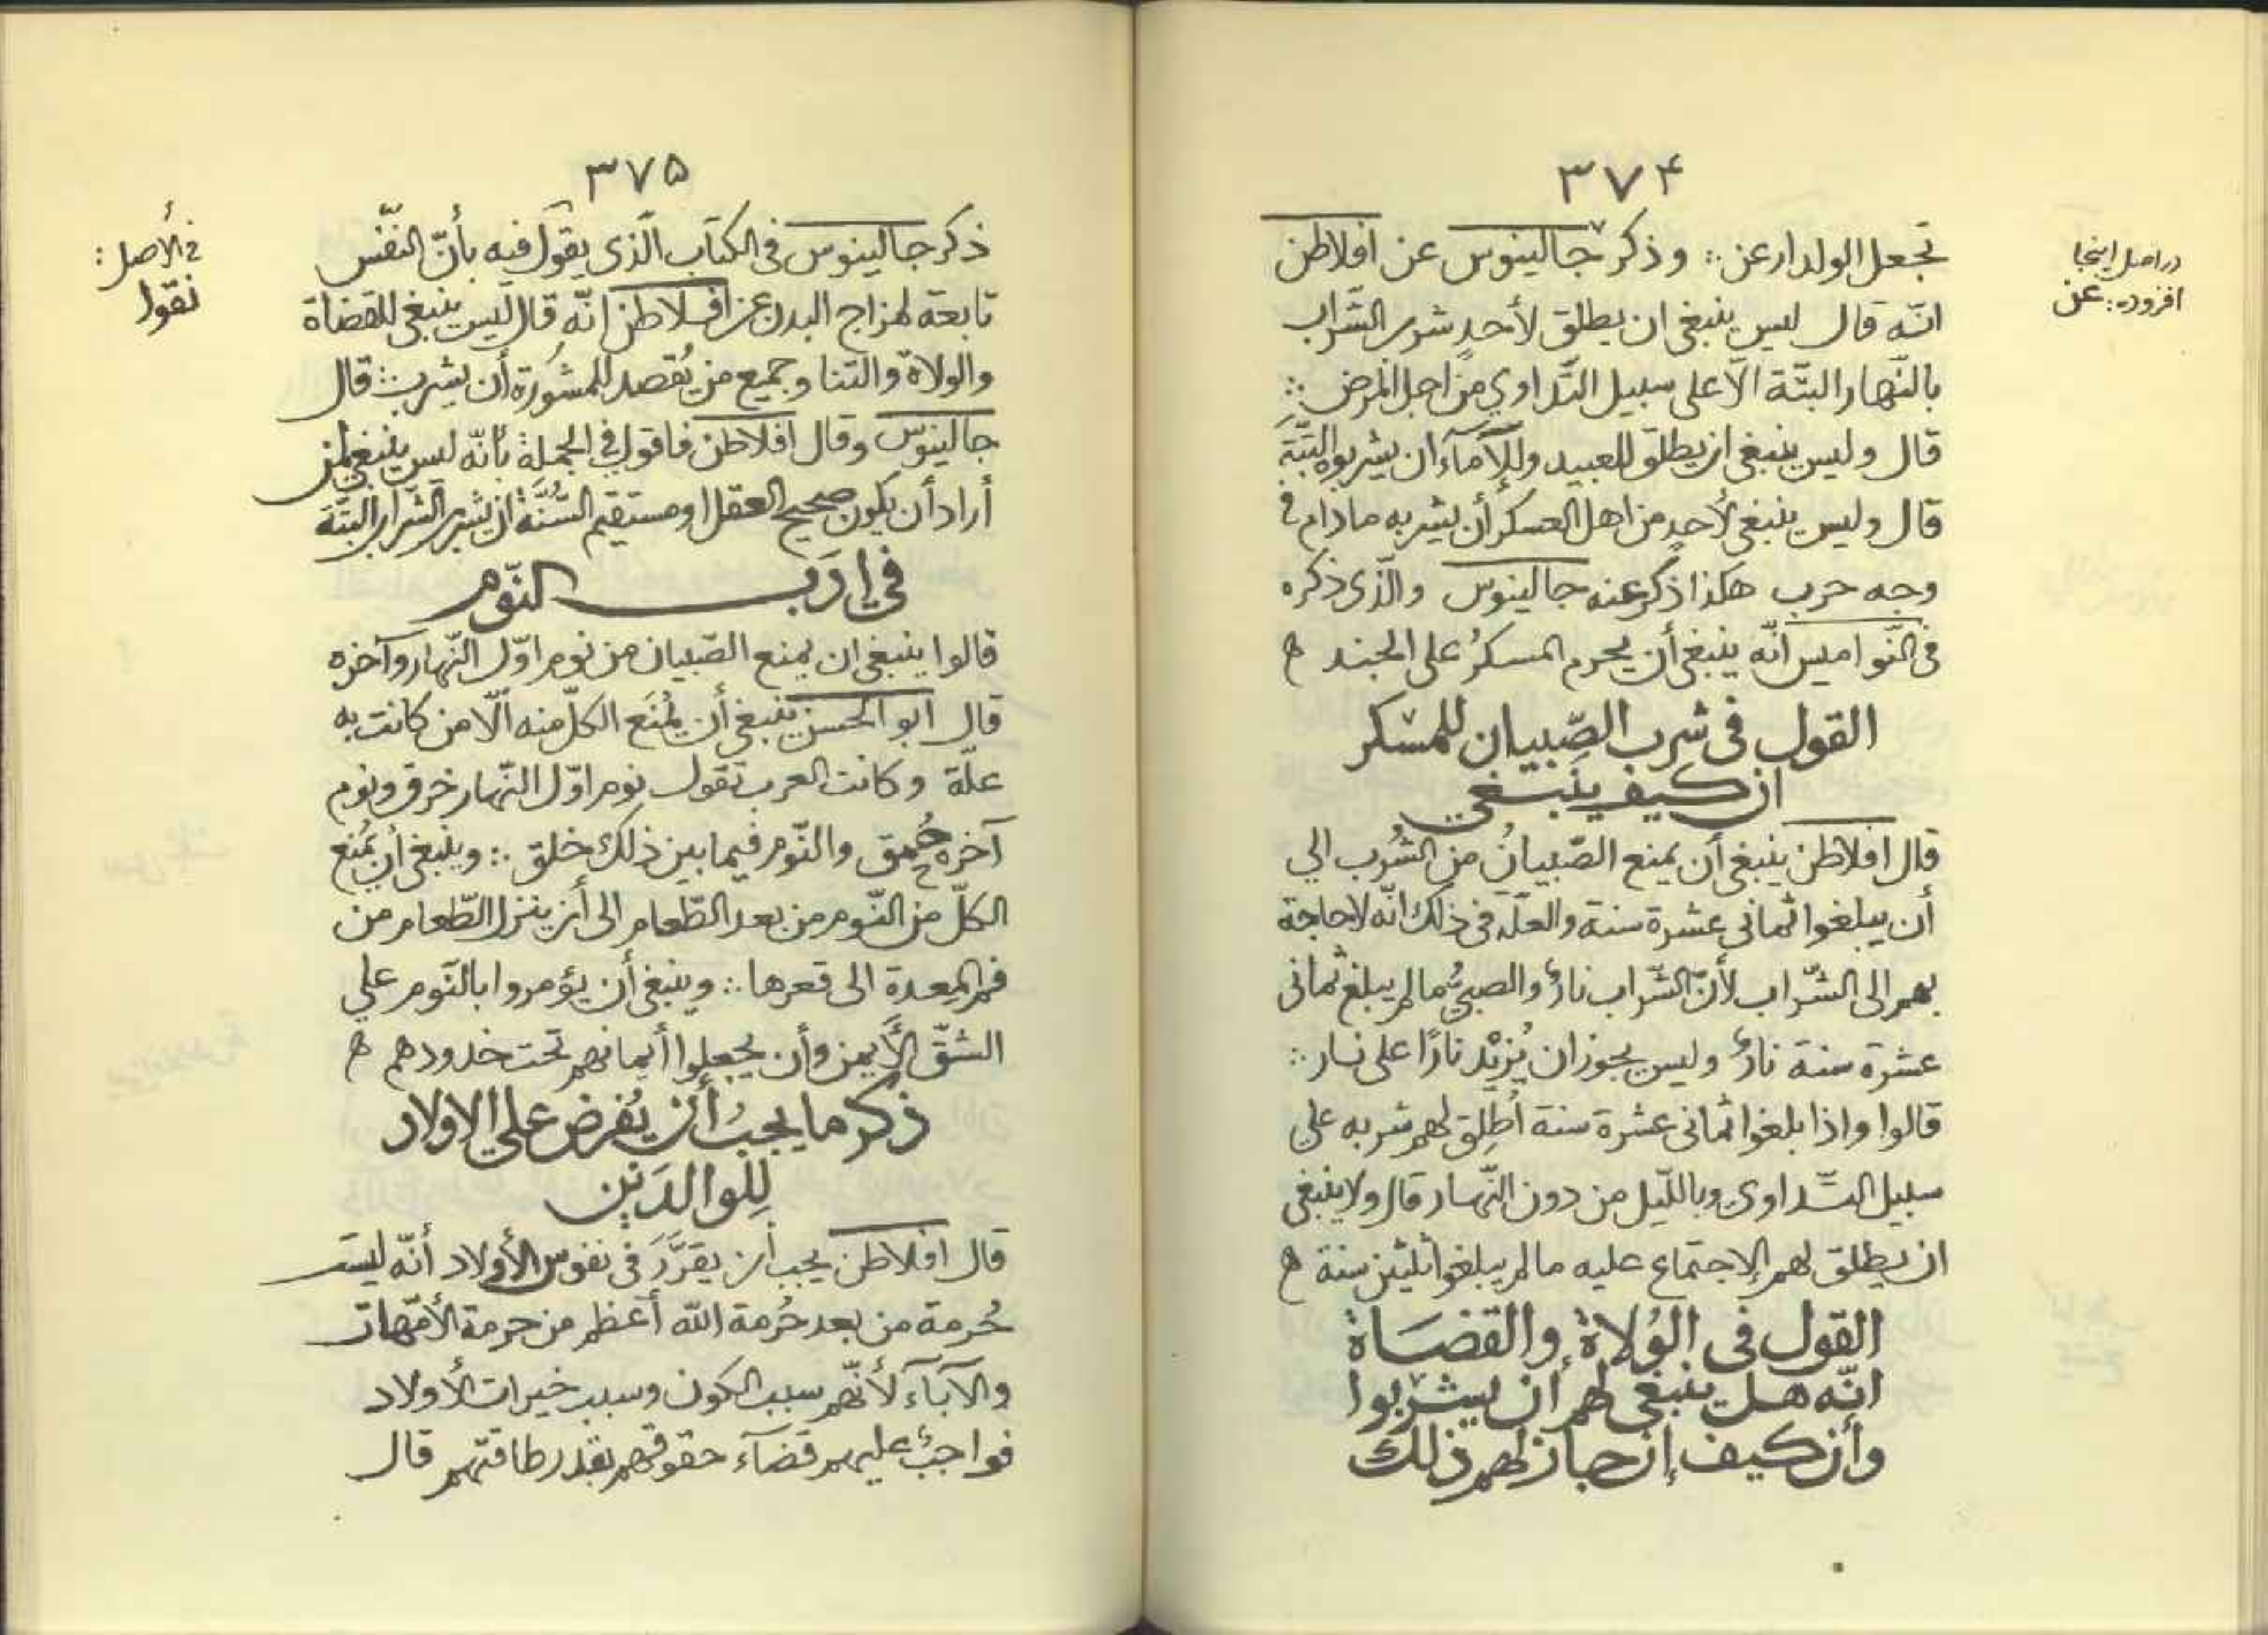 ۳۷۴
تجعل الولد ارعن ∴ وذكر جالينوس عن افلاطن
انّه قال ليس ينبغى ان يطلق لأحدٍ شرب الشّراب
بالنّهار البتّة الاّ على سبيل التّداوي من اجل المرض ∴
قال وليس ينبغى ان يطلق للعبيد وللإمآء ان يشربوه البتّة
قال وليس ينبغى لأحدٍ من اهل العسكر أن يشربه ما دام فى
وجه حرب هكذا ذكر عنه جالينوس والّذى ذكره
فى النّواميس انّه ينبغى أن يحرم المسكرُ على الجند ه
القول فى شرب الصّبيان للمسكر
ان كيف ينبغي
قال افلاطن ينبغى أن يمنع الصّبيانُ من الشُرب الي
أن يبلغوا ثمانى عشرة سنة والعلّة فى ذلك انّه لا حاجة
بهم الى الشّراب لأنّ الشّراب نارٌ والصبيُّ ما لم يبلغ ثمانى
عشرة سنة نارٌ وليس يجوز ان يُزيْد نارًا على نار ∴
قالوا واذا بلغوا ثمانى عشرة سنة أُطلِق لهم شربه علي
سبيل التّداوي وبالليّل من دون النّهار قال ولا ينبغى
ان يطلق لهم الاجتماع عليه ما لم يبلغوا ثلثين سنة ه
القول فى الوُلاة والقضَاة
انّه هل ينبغى لهم أن يشربوا
وأن كيف إن جاز لهم ذلك
در اصل اينجا
افزوده: عن
۳۷۵
ذكر جالينوس فى الكتاب الّذى يقول فيه بأنّ النفْس
تابعة لمزاج البدن عن افلاطن انّه قال ليس ينبغى للقضاة
والولاة والتنا وجميع من يُقصد للمشورة أن يشرب ∴ قال
جالينوس وقال افلاطن فاقول فى الجملة بأنّه ليس ينبغى لمن
أراد أن يكون صحيح العقل او مستقيم السُنَّة ان يشرب الشراب البتّة
فى ادب النّوم
قالوا ينبغى ان يمنع الصّبيان من نوم اوّل النّهار وآخره
قال ابو الحسن ينبغى أن يُمنَع الكلّ منه الّا من كانت به
علّة وكانت العرب تقول نوم اوّل النّهار خرق ونوم
آخره حُمق والنّوم فيما بين ذلك خلق ∴ وينبغى أن يُمنع
الكلّ من النّوم من بعد الطّعام الى أن ينزل الطّعام من
فم المعدة الى قعرها ∴ وينبغى أن يؤمروا بالنّوم علي
الشقّ الأيمن وأن يجعلوا أيمانهم تحت خدودهم ه
ذكر ما يجب أن يُفرض علي الاولاد
لِلوالدَين
قال افلاطن يجب أن يقرَّر فى نفوس الأولاد أنّه ليست
حُرمة من بعد حُرمة الله أعظم من حرمة الأمّهات
والآبآء لأنّهم سبب الكون وسبب خيرات الأولاد
فواجبٌ عليهم قضآء حقوقهم بقدر طاقتهم قال
فى الأصل:
نقول